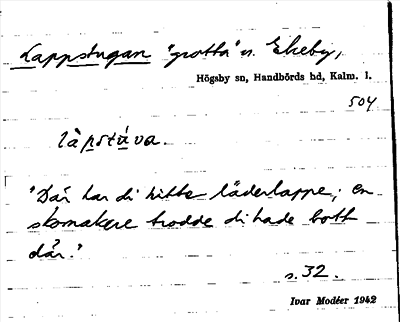 Lappstugan "grotta" v. Ekeby,
Högsby sn, Handbörds hd, Kalm. l.
504
làpstáva.
"Där har di hitta läderlappe; en
skomakere trodde di hade bott
där."
s. 32.
Ivar Modéer 1942